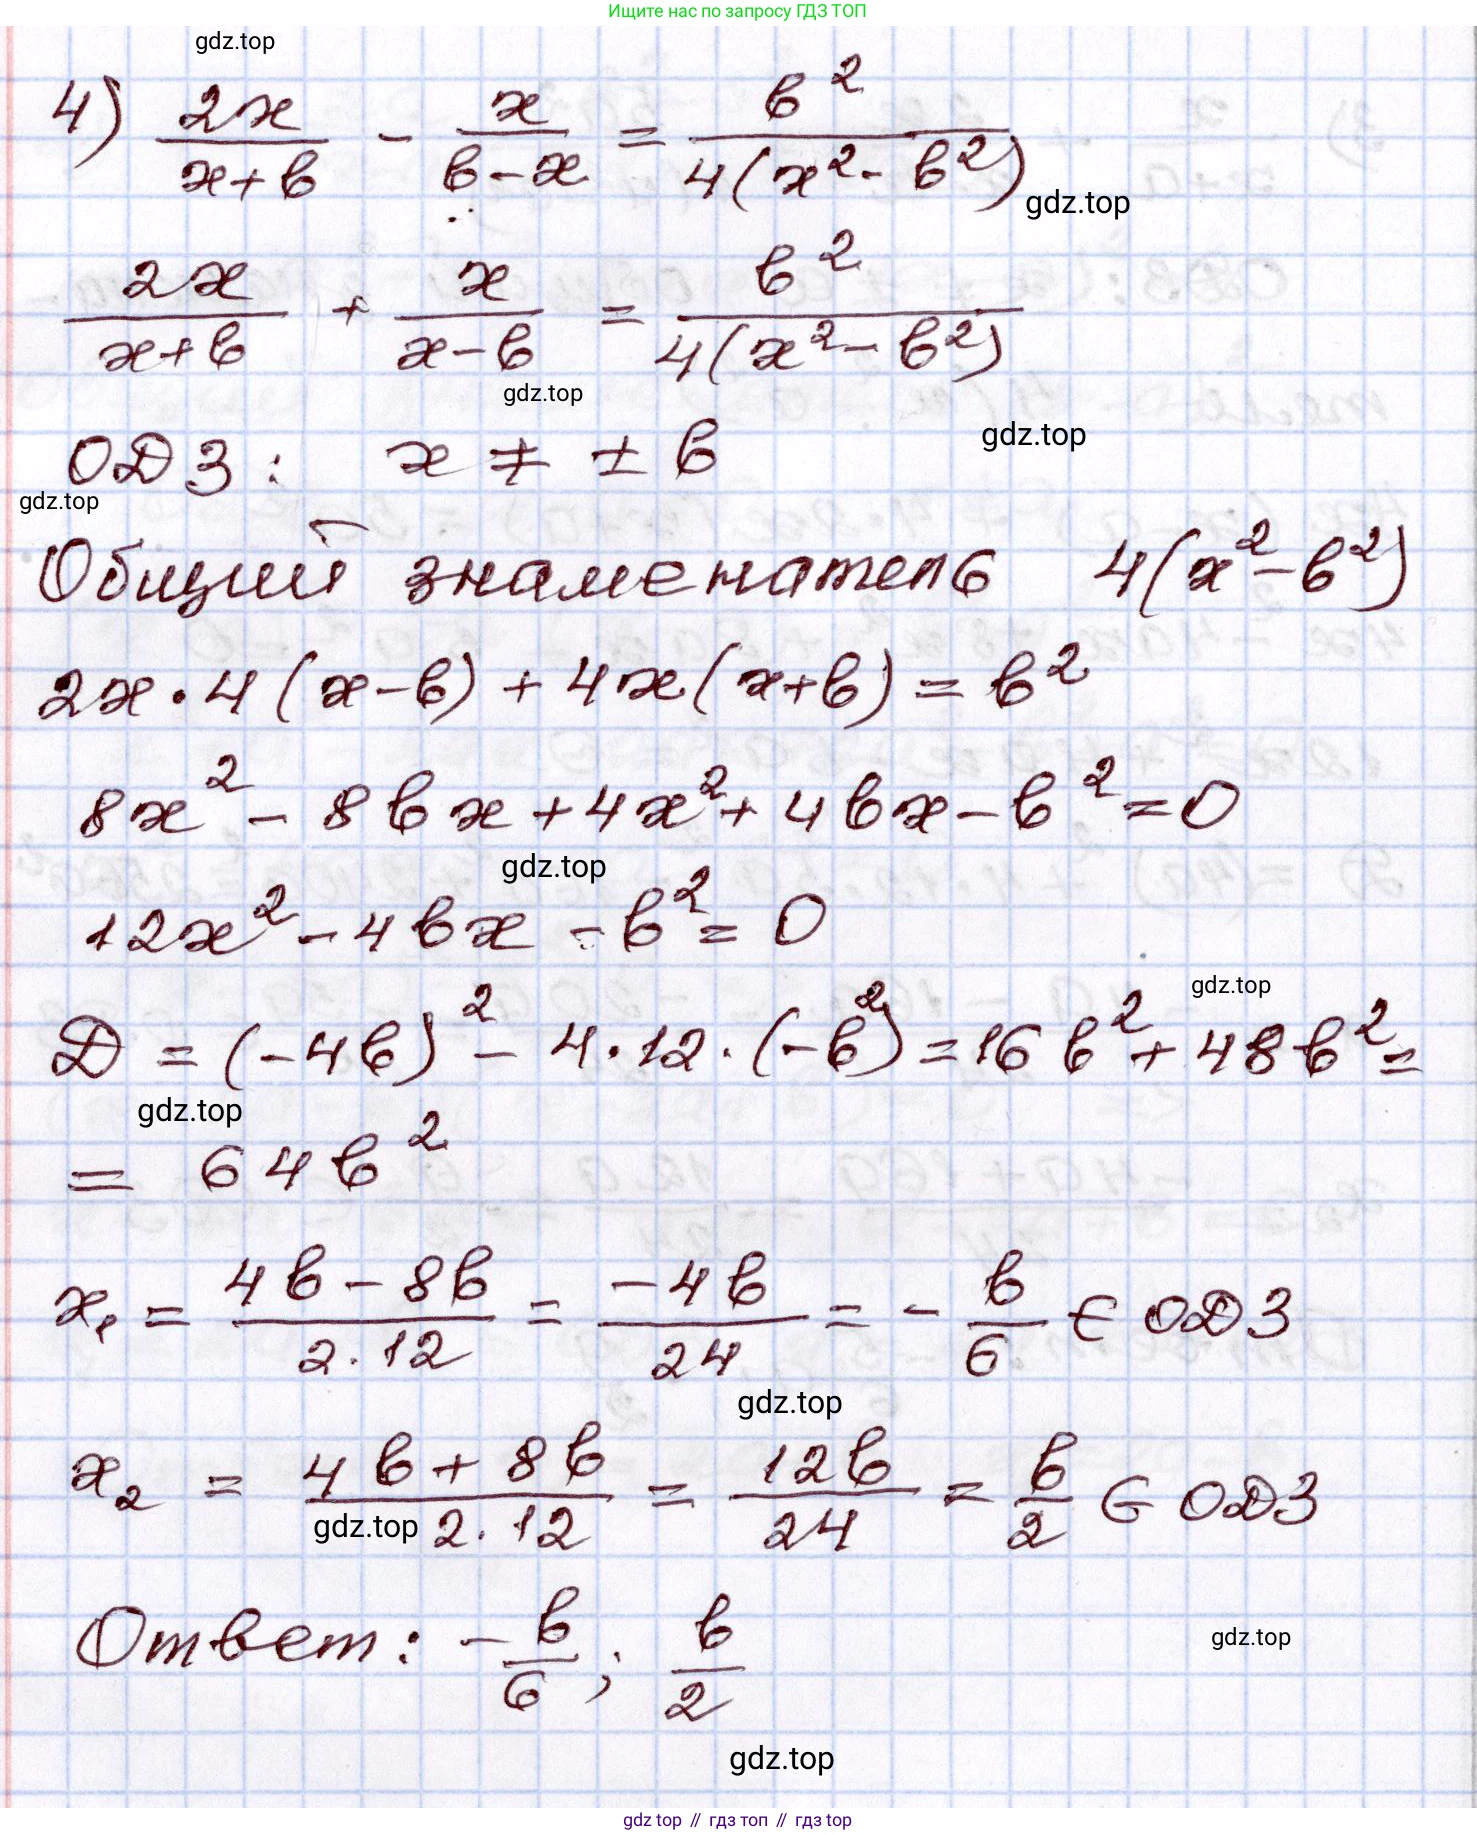 Ищите нас по запросу ГДЗ ТОП
gdz.top
4) 2x/(x+b) - x/(b-x) = b²/(4(x²-b²))
gdz.top
2x/(x+b) + x/(x-b) = b²/(4(x²-b²))
gdz.top
gdz.top
ОДЗ: x ≠ ± b
gdz.top
Общий знаменатель 4(x²-b²)
2x·4(x-b)+4x(x+b)=b²
8x²-8bx+4x²+4bx-b²=0
gdz.top
12x²-4bx-b²=0
gdz.top
Д=(-4b)²-4·12·(-b²)=16b²+48b²=
gdz.top
= 64b²
x₁ = (4b-8b)/(2·12) = (-4b)/24 = -b/6 ∈ ОДЗ
gdz.top
x₂ = (4b+8b)/(2·12) = 12b/24 = b/2 ∈ ОДЗ
gdz.top
Ответ: -b/6; b/2
gdz.top
gdz.top
gdz top // гдз топ // гдз top